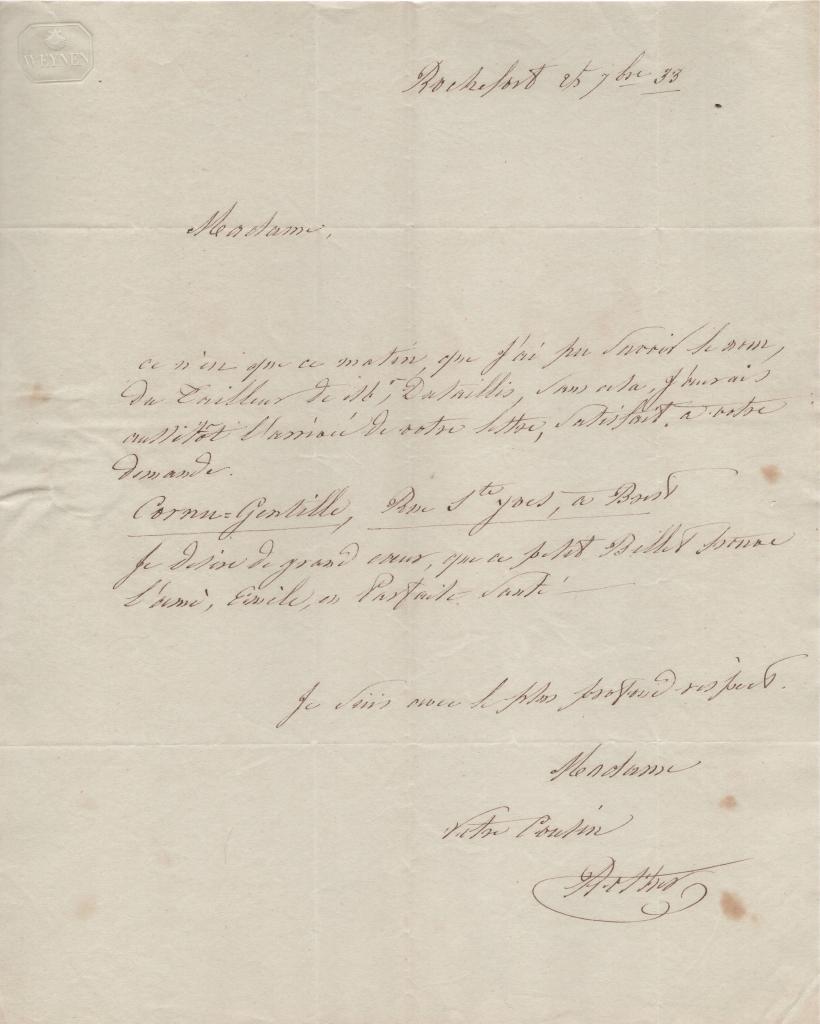 WEYNEN
Rochefort 25 7bre 33
Madame,
ce n'est que ce matin, que j'ai pu savoir le nom,
du Tailleur de Mr, Dataillis, sans cela, j'aurais
aussitôt l'arrivée de votre lettre, satisfait, a votre
demande.
Cornu=Gentille, Rue Ste yves, a Brest
Je desire de grand cœur, que ce petit Billet trouve
l'ami, Emile, en Parfaite Santé
Je suis avec le plus profond respect.
Madame
Votre Cousin